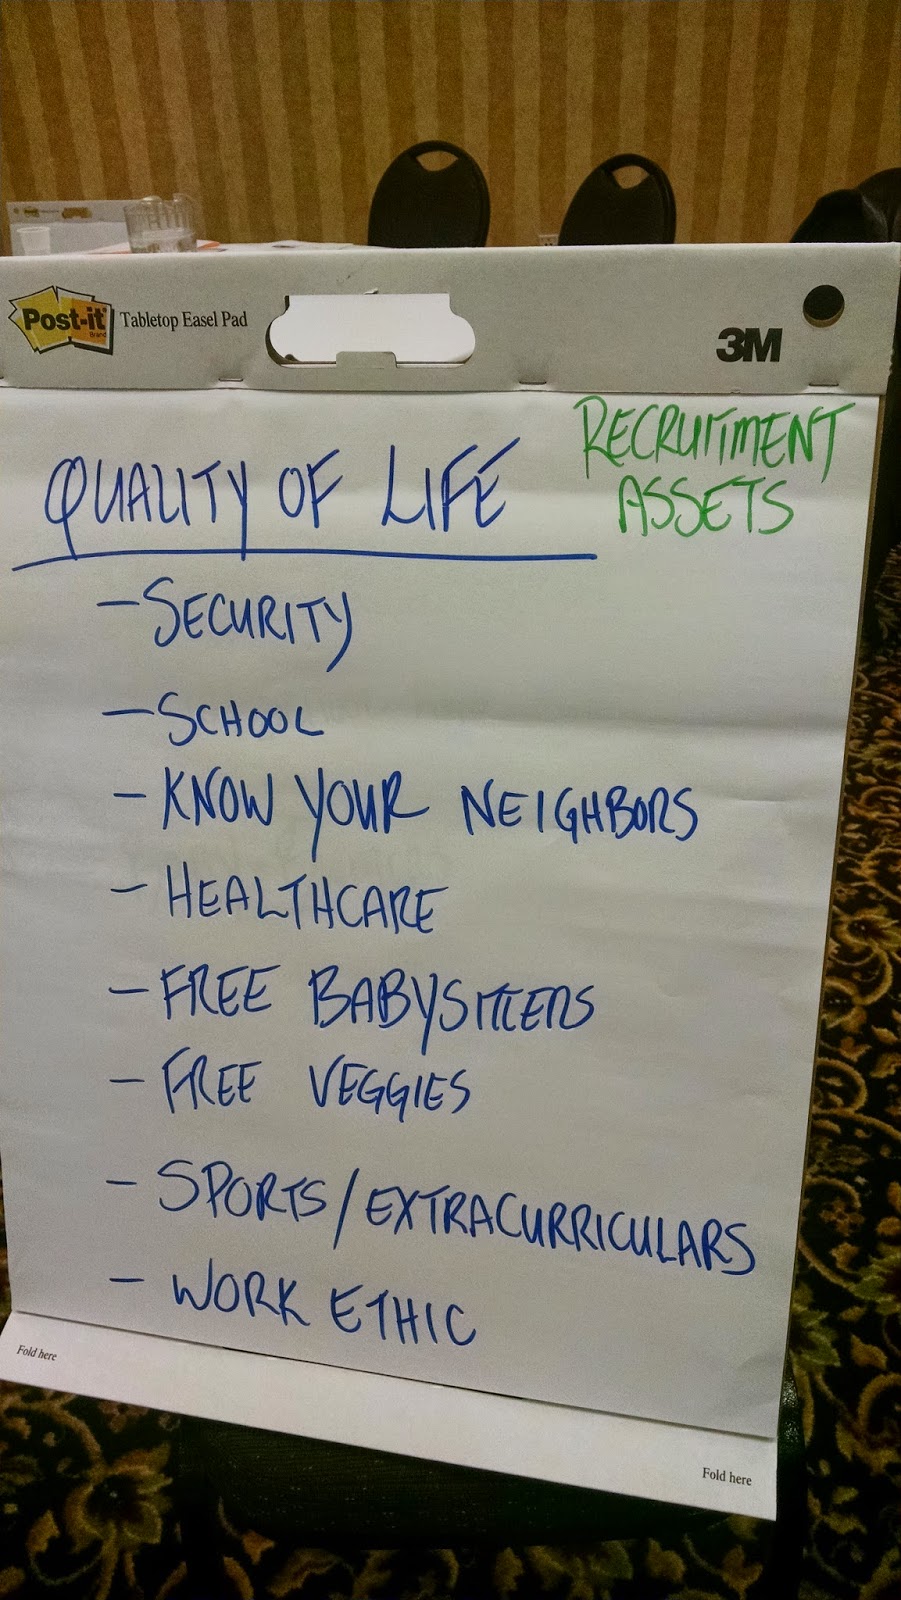 Post-it
Brand
Tabletop Easel Pad
3M
RECRUITMENT
ASSETS
QUALITY OF LIFE
- SECURITY
- SCHOOL
- KNOW YOUR NEIGHBORS
- HEALTHCARE
- FREE BABYSITTERS
- FREE VEGGIES
- SPORTS/EXTRACURRICULARS
- WORK ETHIC
Fold here
Fold here